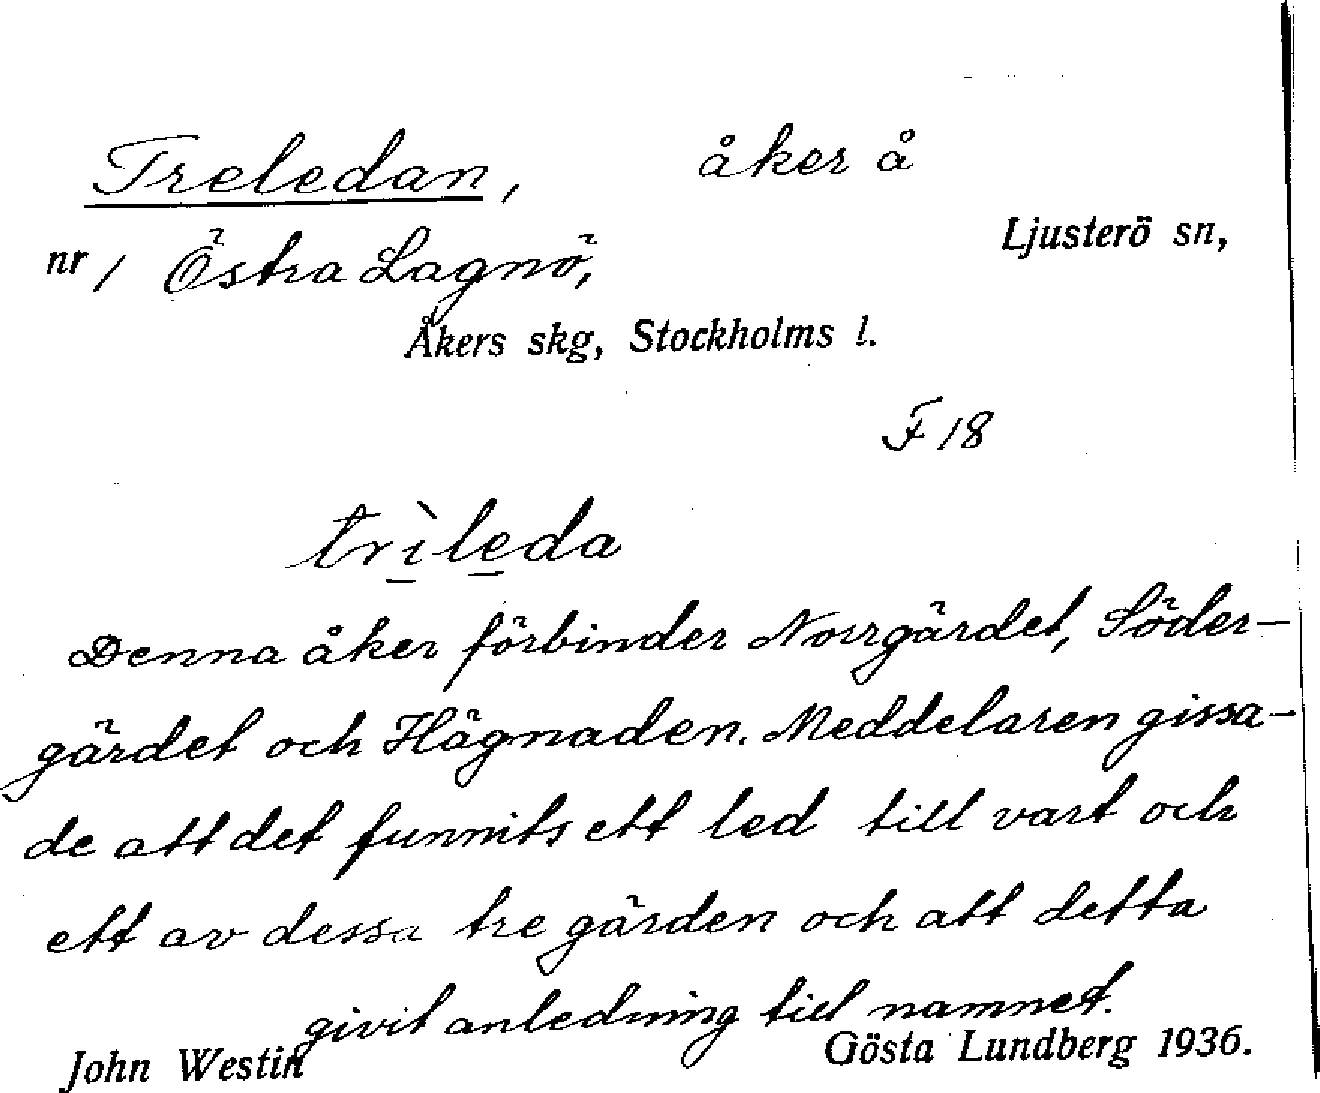 Treledan, åker å
Ljusterö sn,
nr 1 Östra Lagnö,
Åkers skg, Stockholms l.
F 18
trìleda
Denna åker förbinder Norrgärdet, Söder-
gärdet och Hägnaden. Meddelaren gissa-
de att det funnits ett led till vart och
ett av dessa tre gärden och att detta
givit anledning till namnet.
John Westin Gösta Lundberg 1936.